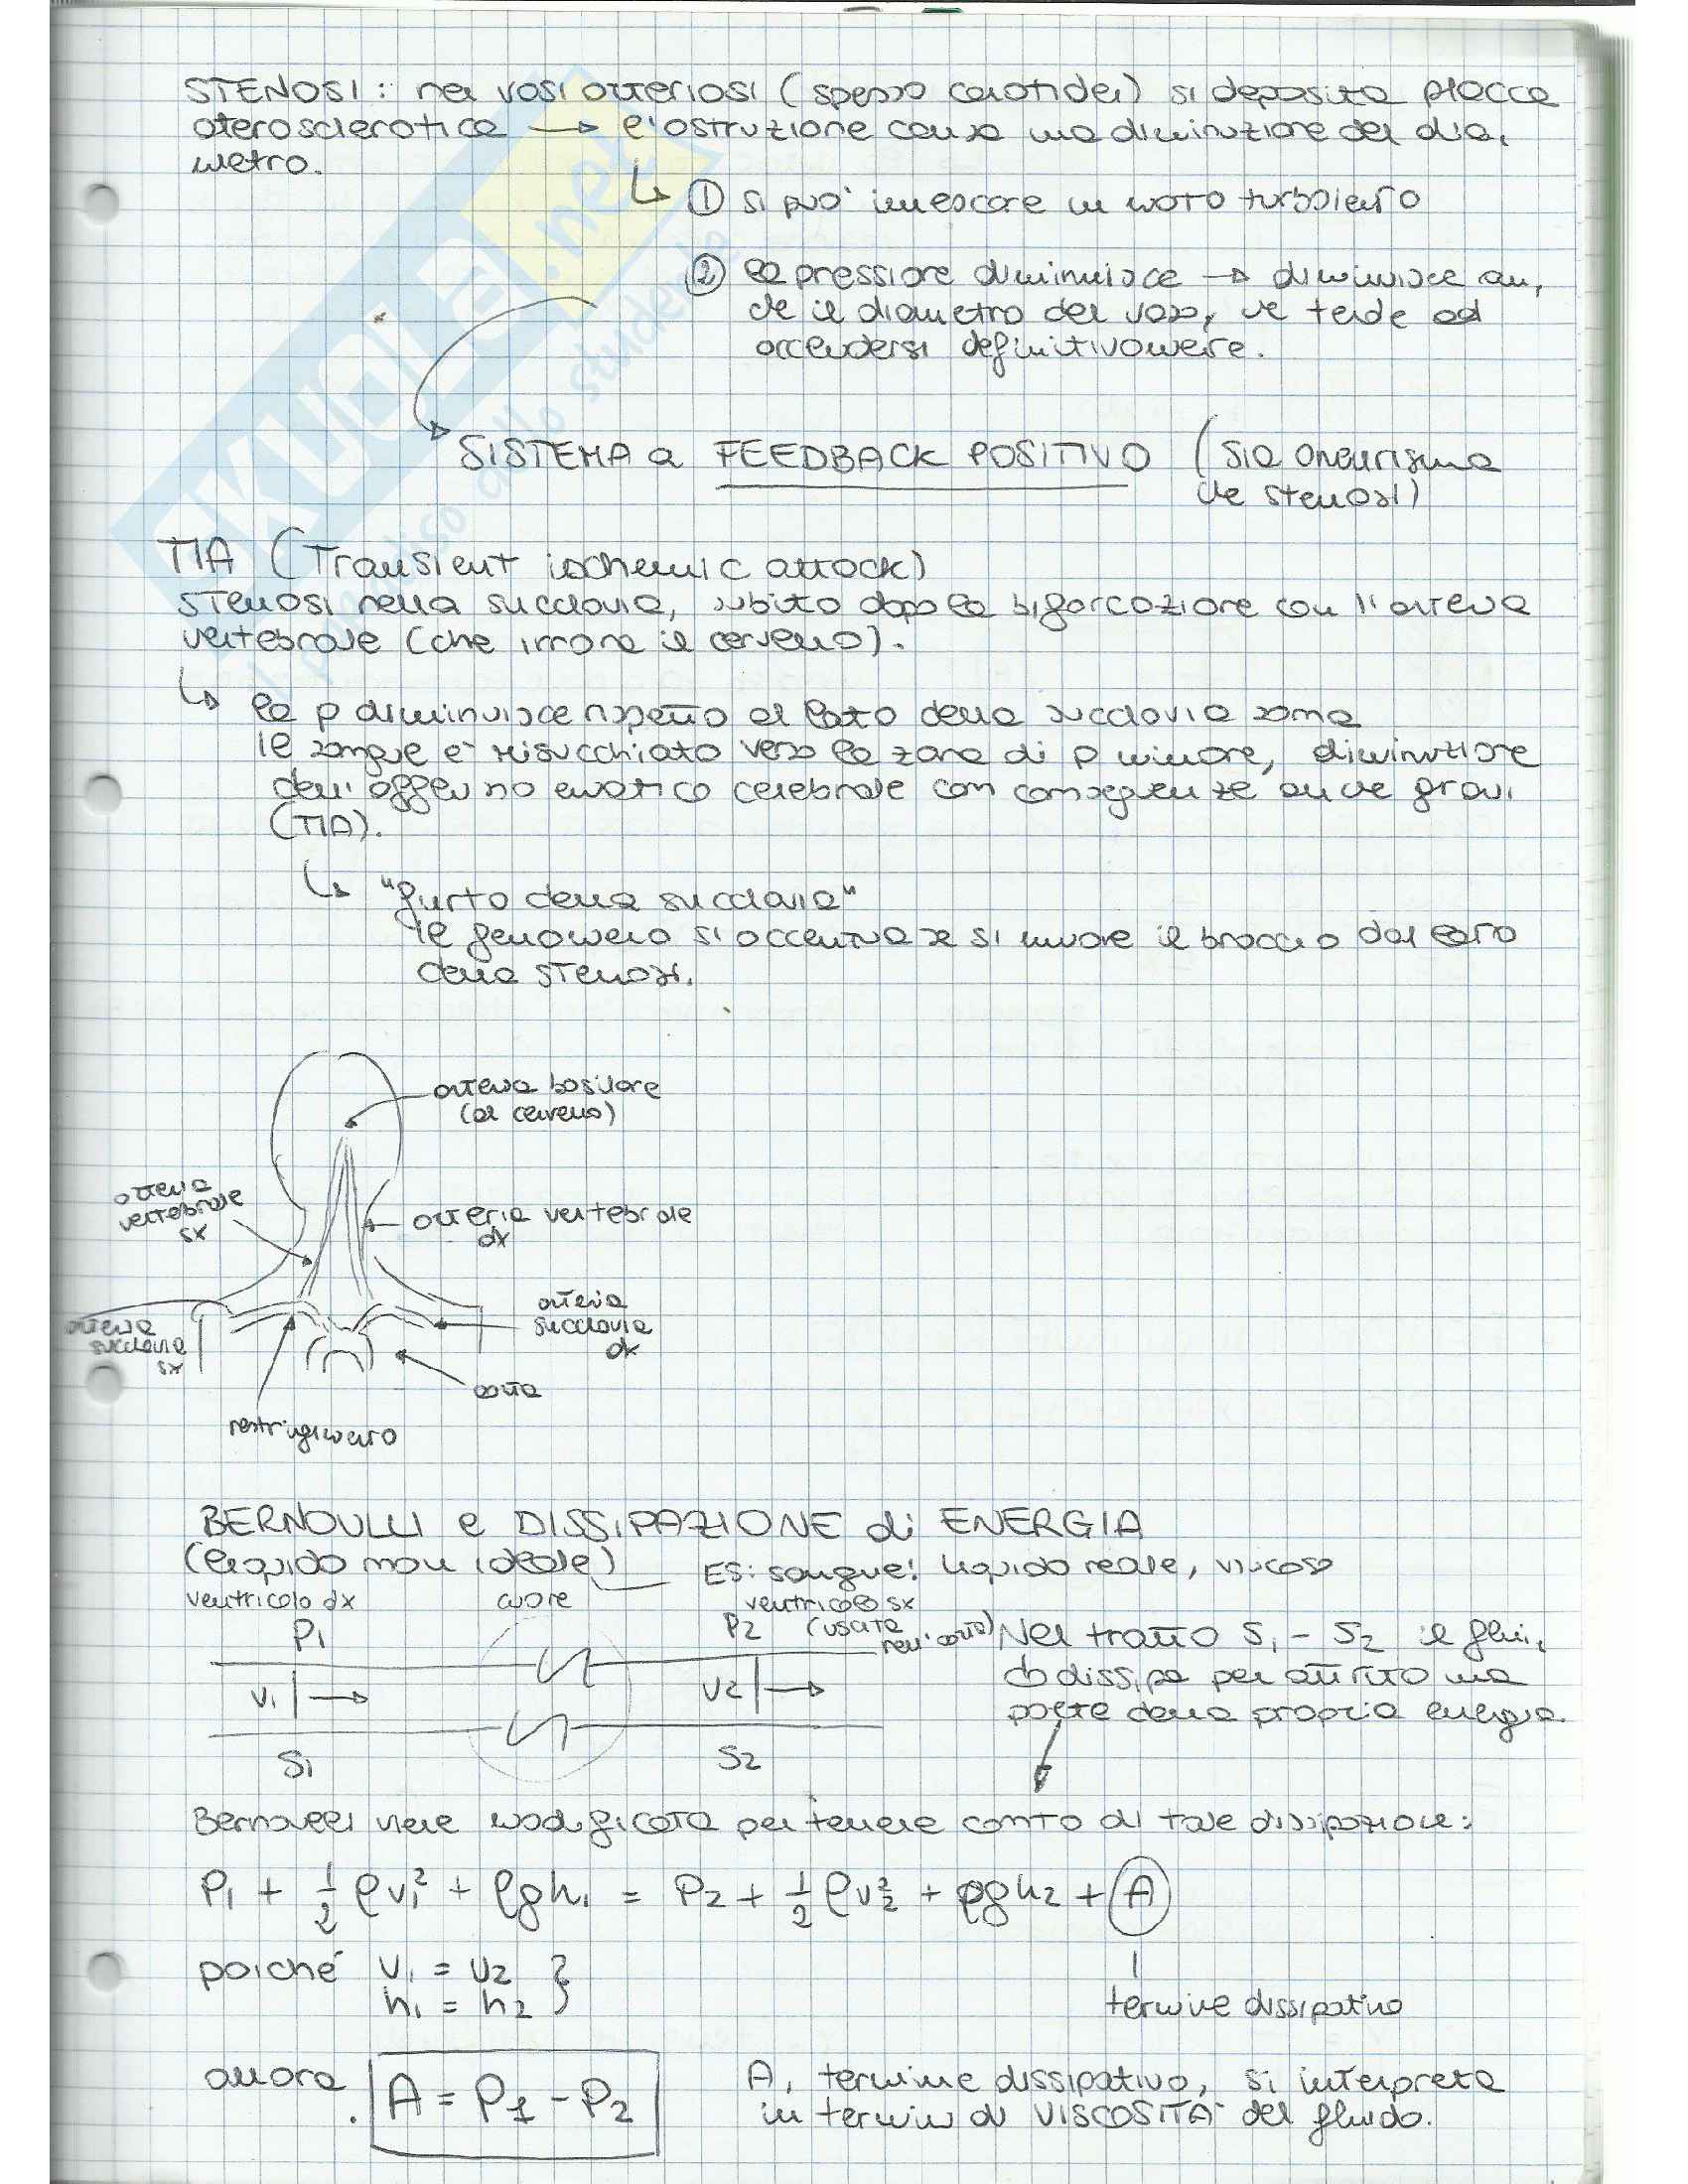 STENOSI: nei vasi arteriosi (spesso carotidei) si deposita placca
aterosclerotica → l'ostruzione causa una diminuzione del dia,
metro.
↳ ① si può innescare un moto turbolento
② la pressione diminuisce → diminuisce an,
che il diametro del vaso, che tende ad
occludersi definitivamente.
SISTEMA a FEEDBACK POSITIVO (sia aneurisma
che stenosi)
TIA (Transient ischemic attack)
stenosi nella succlavia, subito dopo la biforcazione con l'arteria
vertebrale (che irrora il cervello).
↳ la p diminuisce rispetto al lato della succlavia sana
il sangue è risucchiato verso la zona di p minore, diminuzione
dell'afflusso ematico cerebrale con conseguenze anche gravi
(TIA).
↳ "furto della succlavia"
il fenomeno si accentua se si muove il braccio dal lato
della stenosi.
arteria basilare
(al cervello)
arteria
vertebrale
sx
arteria vertebrale
dx
arteria
succlavia
sx
arteria
succlavia
dx
aorta
restringimento
BERNOULLI e DISSIPAZIONE di ENERGIA
(liquido non ideale) ES: sangue! liquido reale, viscoso
ventricolo dx cuore ventricolo sx
P1 P2 (uscita
nell'aorta)
Nel tratto S1 - S2 il flui,
do dissipa per attrito una
parte della propria energia.
V1 → V2 →
S1 S2
Bernoulli viene modificata per tenere conto di tale dissipazione:
P1 + 1/2 ρv1² + ρgh1 = P2 + 1/2 ρv2² + ρgh2 + A
poiché v1 = v2 }
h1 = h2
termine dissipativo
allora A = P1 - P2
A, termine dissipativo, si interpreta
in termini di VISCOSITA' del fluido.
SKUOLA.net
il paradiso dello studente